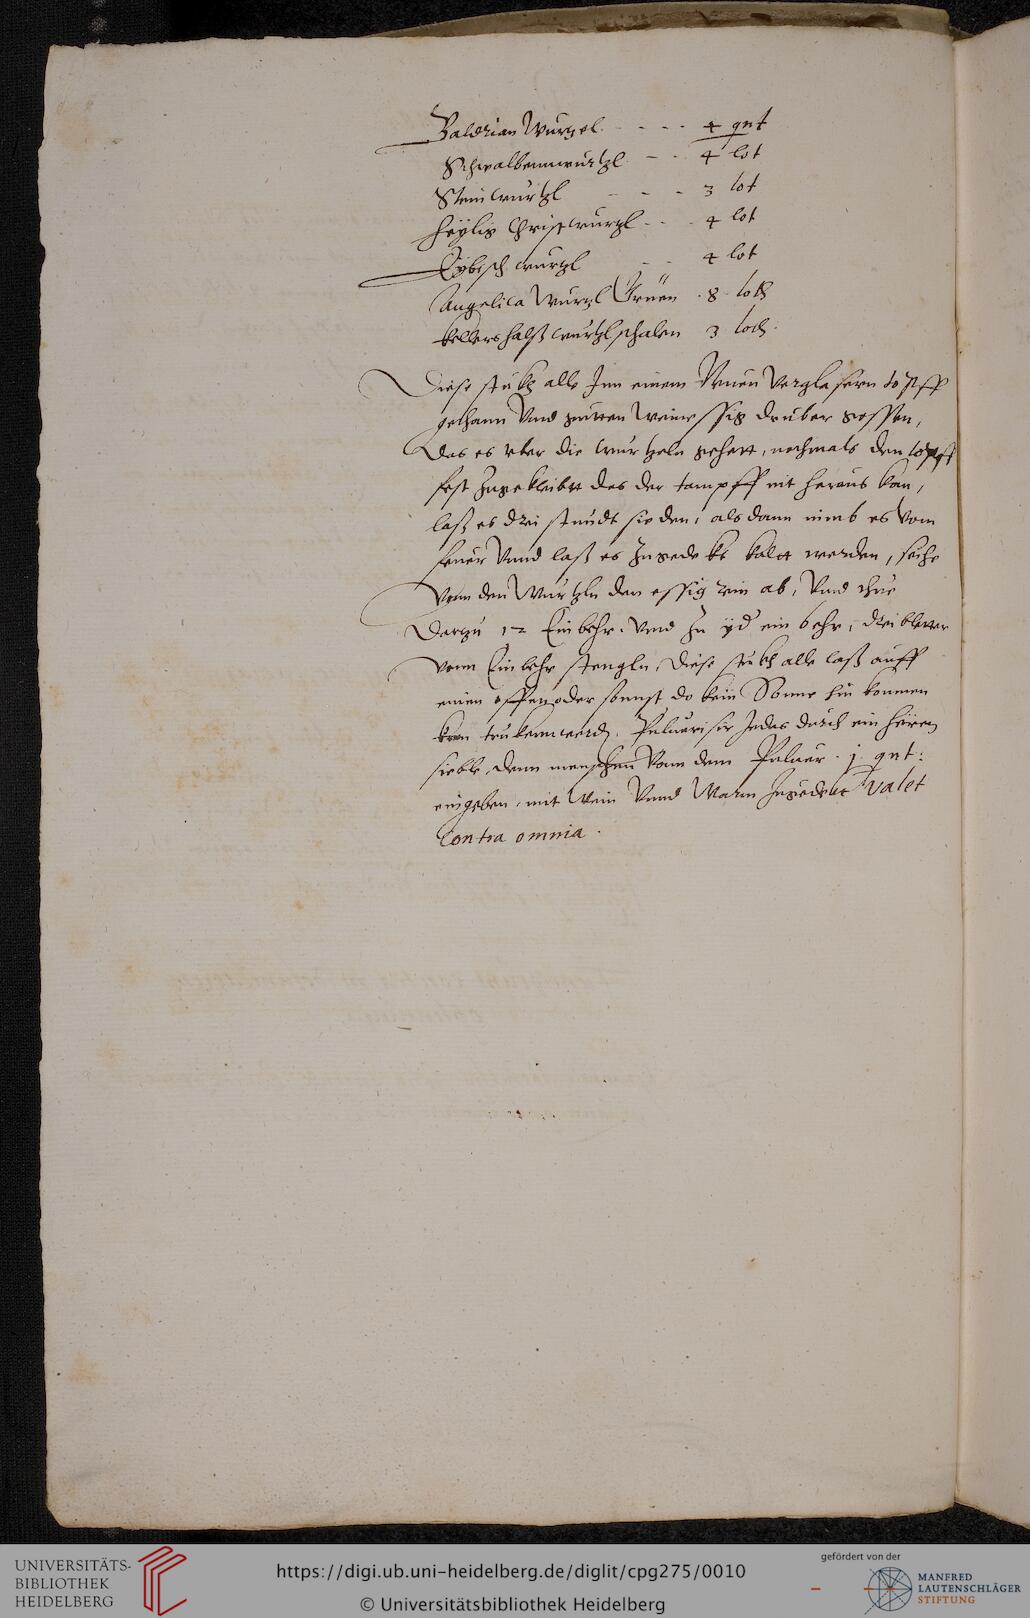 Baldrian Wurtzel - - - - 4 qnt
Schwalbenwurtzl - - 4 lot
Steinwurtzl - - - 3 lot
heylig Christwurtzl - - - 4 lot
Eybisch wurtzl - - 4 lot
Angelica Wurtzl Gruen . 8 . loth
kellershalß wurtzl schalen 3 loth.
Diese stukh alle Inn einem Neuen verglasern topff
gethann Vnd gutten Weinessig druber gossen,
Das es vber die wurtzeln gehett, nochmals den topff
fest Zugekleibtt das der tampff nit heraus kan,
laß es drei stundt sieden, als dann nimb es Vom
feuer Vnnd laß es Zugedekt kaltt werden, seihe
Vonn den Wurtzln den essig rein ab, Vnd thue
Dartzu 12 Einbehr. Vnd Zu yd ein behr, drei bletter
vonn Einbehr stengln, Diese stukh alle laß auff
einen offen oder sonnst do kein Sonne hin kommen
kan trukenn werdn. Puluerisir Jedes durch ein heren
sieble, denn menschen Vonn dem Puluer . j. qnt:
eingeben, mit Wein Vnnd Warm Zugedekt Valet
Contra omnia.
UNIVERSITÄTS-
BIBLIOTHEK
HEIDELBERG
https://digi.ub.uni-heidelberg.de/diglit/cpg275/0010
© Universitätsbibliothek Heidelberg
gefördert von der
MANFRED
LAUTENSCHLÄGER
STIFTUNG